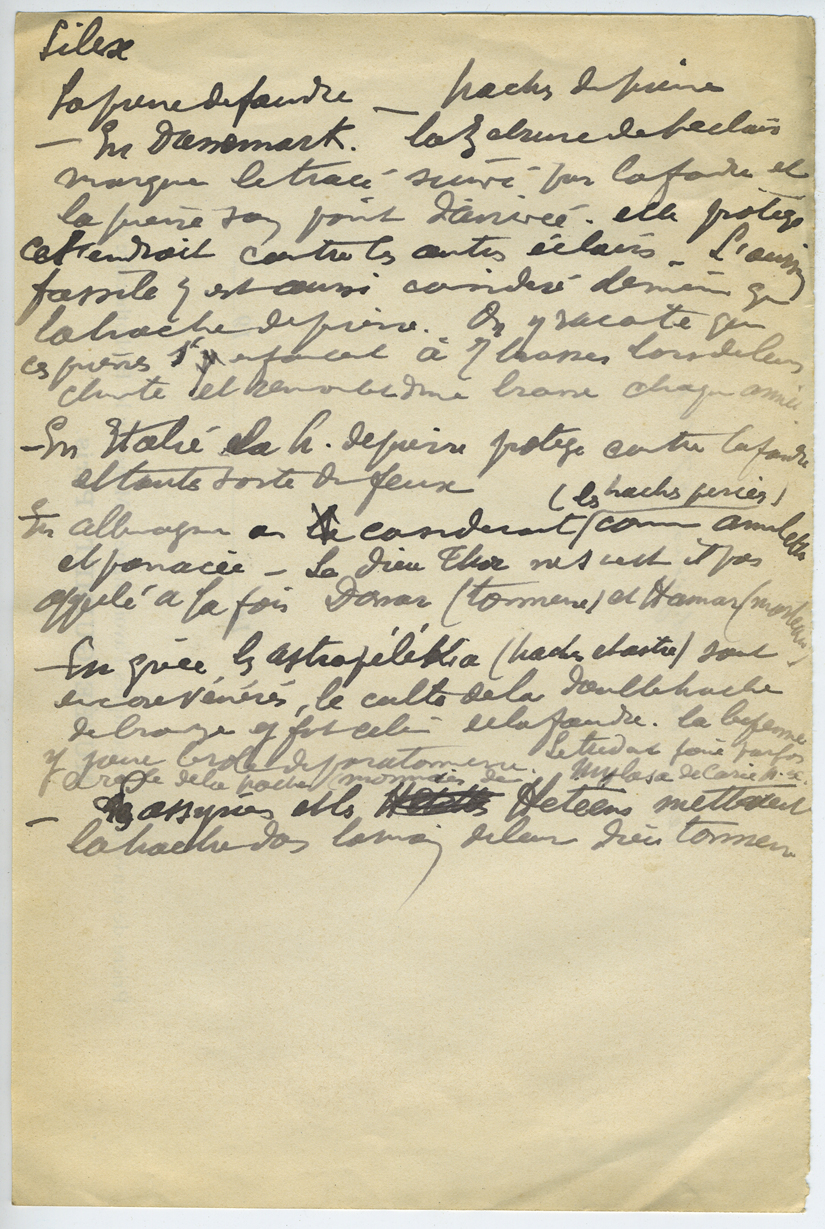 Silex
La pierre de foudre — haches de pierre
— En Danemark. la zébrure de l'éclair
marque le tracé suivi par la foudre et
la pierre son point d'arrivée. elle protège
cet endroit contre les autres éclairs — L'oursin
fossile y est aussi considéré de même que
la hache de pierre. On y raconte que
ces pierres s'enfoncent à 7 brasses lors de leur
chute et remontent d'une brasse chaque année
— En Italie la h. de pierre protège contre la foudre
et toute sorte de feux
(les haches percées)
En allemagne on considerait comme amulettes
et panacée — Le dieu Thor n'est il pas
appelé à la fois Donar (tonnerre) et Hamar (marteau)
— En grèce les astropélékia (hache et astre) sont
encore vénérés, le culte de la double hache
de bronze y fut celui de la foudre. la
y joue le role de paratonnerre. Le trident joue parfois
le role de la hache (monnaies de Mylasa de Carie
— Les assyriens et les Heteens mettaient
la hache dans la main de leur dieu tonnerre